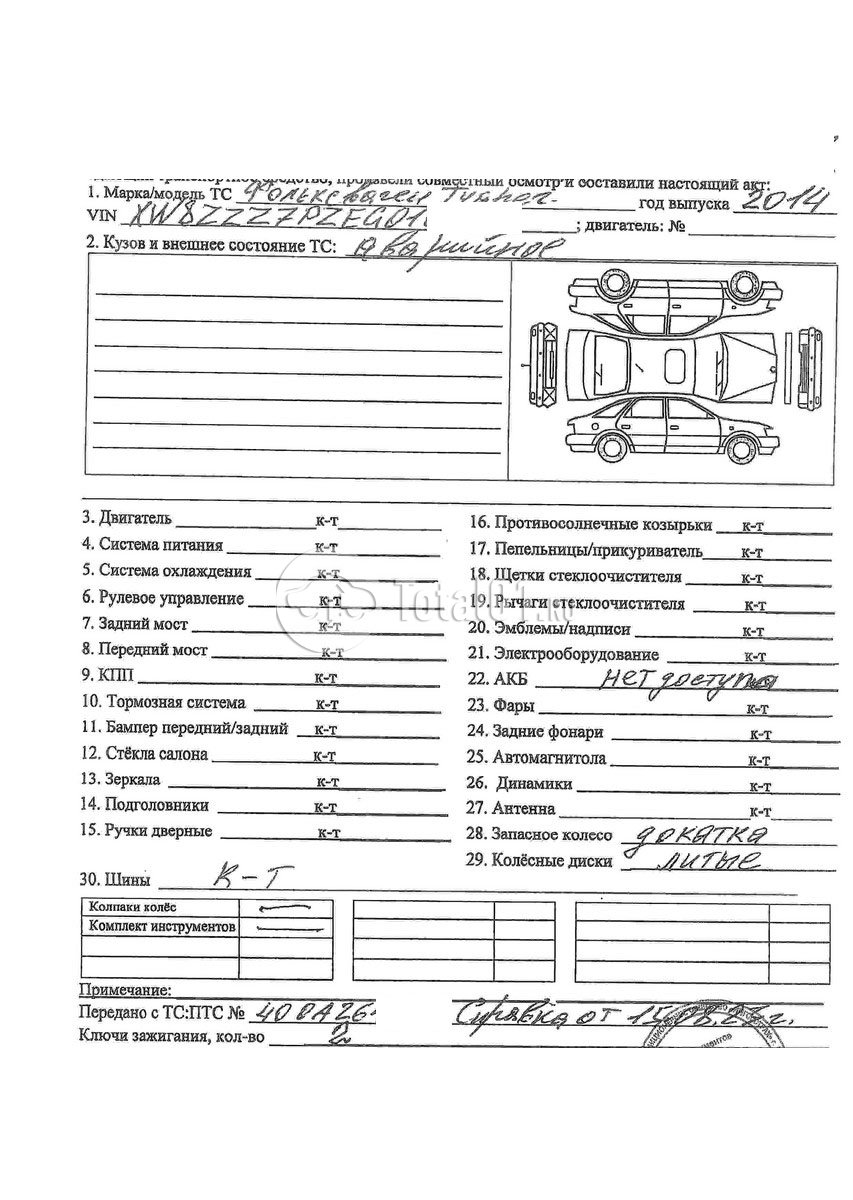 транспортное средство, произвели совместный осмотр и составили настоящий акт:
1. Марка/модель ТС Фольксваген год выпуска 2014
VIN XW8ZZZ7PZEG01 ; двигатель: №
2. Кузов и внешнее состояние ТС: аварийное
3. Двигатель к-т
4. Система питания к-т
5. Система охлаждения к-т
6. Рулевое управление к-т
7. Задний мост к-т
8. Передний мост к-т
9. КПП к-т
10. Тормозная система к-т
11. Бампер передний/задний к-т
12. Стёкла салона к-т
13. Зеркала к-т
14. Подголовники к-т
15. Ручки дверные к-т
16. Противосолнечные козырьки к-т
17. Пепельницы/прикуриватель к-т
18. Щетки стеклоочистителя к-т
19. Рычаги стеклоочистителя к-т
20. Эмблемы/надписи к-т
21. Электрооборудование к-т
22. АКБ нет доступа
23. Фары к-т
24. Задние фонари к-т
25. Автомагнитола к-т
26. Динамики к-т
27. Антенна к-т
28. Запасное колесо докатка
29. Колёсные диски литые
30. Шины к-т
Total01.ru
Колпаки колёс —
Комплект инструментов —
Примечание:
Передано с ТС:ПТС № 40ОА26 Справка от 15.08.23 г.
Ключи зажигания, кол-во 2